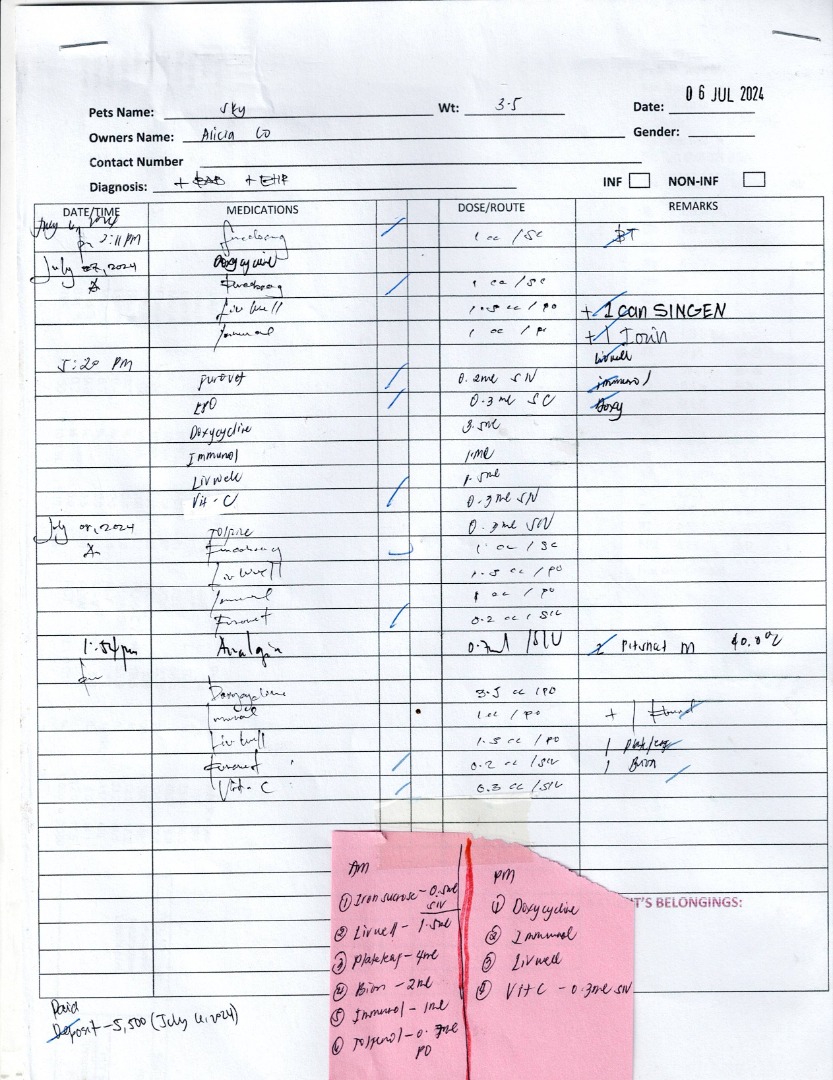 06 JUL 2024
Pets Name: Sky Wt: 3.5 Date:
Owners Name: Alicia Co Gender:
Contact Number
Diagnosis: + + EHR INF NON-INF
DATE/TIME MEDICATIONS DOSE/ROUTE REMARKS
July 6, 2024
2:11 PM 1 cc / SC BT
July 07, 2024 Doxycycline
1 cc / SC
Livwell 1.5 cc / PO + 1 can SINGEN
Immunol 1 cc / PO + 1
Livwell
5:20 PM
Furovet 0.2ml SIV Immunol
EPO 0.3 ml SC Doxy
Doxycycline 3.5ml
Immunol 1ml
Livwell 1.5ml
Vit-C 0.3ml SIV
July 08, 2024 0.3ml SIV
1 cc / SC
Livwell 1.5 cc / PO
Immunol 1 cc / PO
Furovet 0.2 cc / SIV
1:54pm Analgin 0.7ml /SIV 40.0°C
pm
Doxycycline 3.5 cc / PO
Immunol 1 cc / PO + 1
Livwell 1.5 cc / PO 1
Furovet 0.2 cc / SIV 1 Bion
Vit-C 0.3 cc / SIV
AM
① Iron sucrose - 0.5ml SIV
② Livwell - 1.5ml
③ - 4ml
④ Bion - 2ml
⑤ Immunol - 1ml
⑥ PO
PM
① Doxycycline
② Immunol
③ Livwell
④ Vit C - 0.3ml SIV
T'S BELONGINGS:
Paid
Deposit - 5,500 (July 6, 2024)